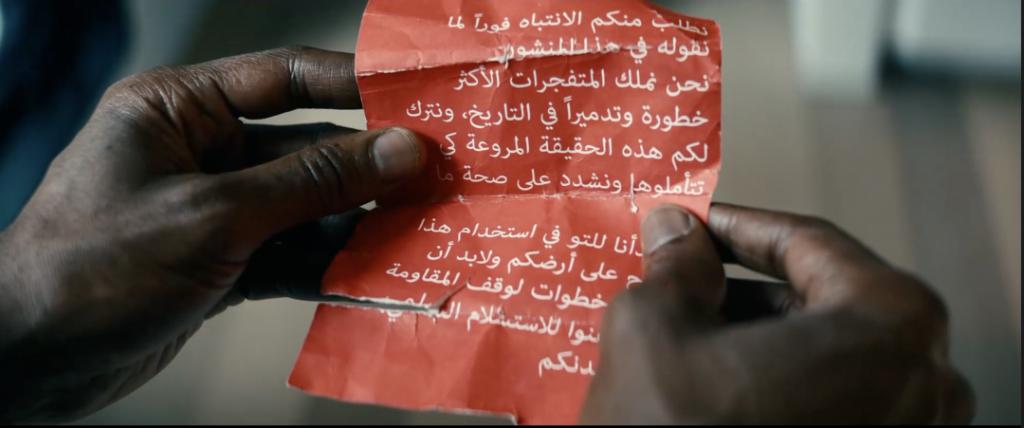 نطلب منكم الانتباه فوراً لما
نقوله في هذا المنشور
نحن نملك المتفجرات الأكثر
خطورة وتدميراً في التاريخ، ونترك
لكم هذه الحقيقة المروعة كي
تتأملوها ونشدد على صحة ما
بدأنا للتو في استخدام هذا
على أرضكم ولابد أن
خطوات لوقف المقاومة
للاستسلام